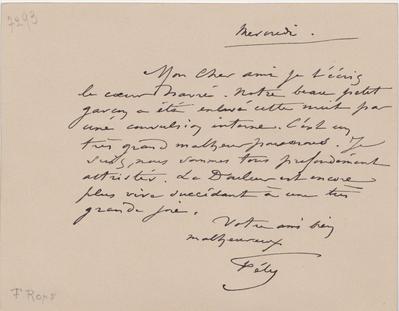 7293
Mercredi.
Mon cher ami je t'écris
le cœur navré. Notre beau petit
garçon a été enlevé cette nuit par
une convulsion interne. C'est un
très grand malheur pour nous. Je
suis, nous sommes tous profondément
attristés. La Douleur est encore
plus vive succédant à une très
grande joie.
Votre ami bien
malheureux
Fély
F Rops